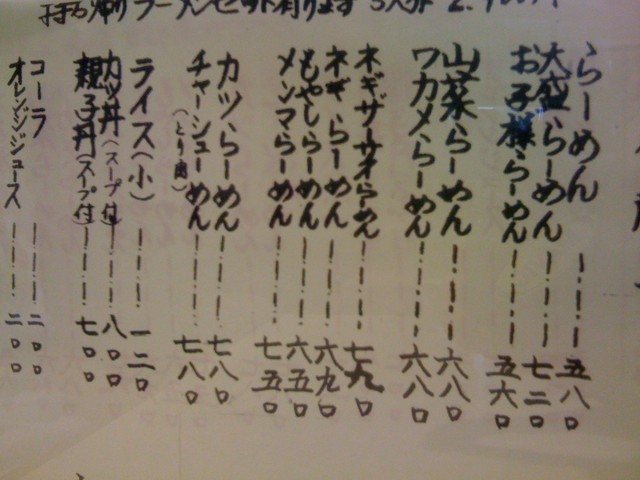 お持ち帰りラーメンセット有ります 3人分
らーめん 五八〇
大盛らーめん 七二〇
お子様らーめん 五六〇
山菜らーめん 六八〇
ワカメらーめん 六八〇
ネギザーサイらーめん 七九〇
ネギらーめん 六九〇
もやしらーめん 六五〇
メンマらーめん 七五〇
カツらーめん 七八〇
チャーシューめん(とり肉) 七八〇
ライス(小) 一二〇
カツ丼(スープ付) 八〇〇
親子丼(スープ付) 七〇〇
コーラ 二〇〇
オレンジジュース 二〇〇